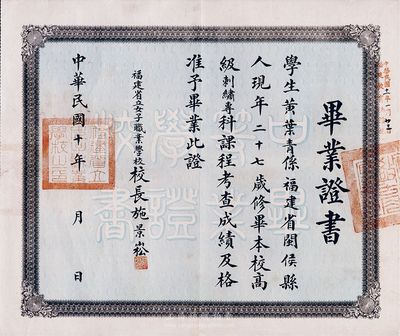 畢業證書
學生黃葉青係福建省閩侯縣
人現年二十七歲修畢本校高
級刺繡專科課程考查成績及格
准予畢業此證
福建省立女子職業學校校長施景崧
中華民國十年 月 日